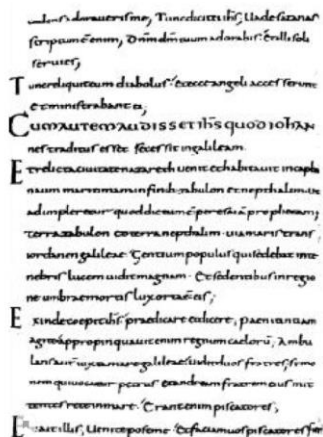 adoraveris me, Tunc dicit ihs, Uade satanas
scriptum e enim, Dnm dm tuum adorabis· et illi soli
seruies,
Tunc reliquit eum diabolus· et ecce angeli accesserunt
et ministrabant ei,
CUM AUTEM AUDISSET IHS QUOD IOHAN
nes traditus esset secessit in galileam.
Et relicta ciuitate nazareth uenit et habitauit in caphar
naum maritimam in finib; zabulon et nepthalim. ut
adimpleretur quod dictum e per esaiā prophetam;
terra zabulon et terra nepthalim· uia maris trans
iordanen galileae Gentium populus qui sedebat in te
nebris lucem uidit magnam· Et sedentibus in regio
ne umbrae mortis lux orta e eis;
Exinde coepit ihs praedicare et dicere, paenitentiam
agite appropinquauit enim regnum caelorū, Ambu
lans aut iuxta mare galileae uidit duos fratres, simo
nem qui uocatur petrus et andream fratrem eius mit
tentes rete in mare· Erant enim piscatores;
Et ait illis, Uenite post me· Et faciam uos piscatores